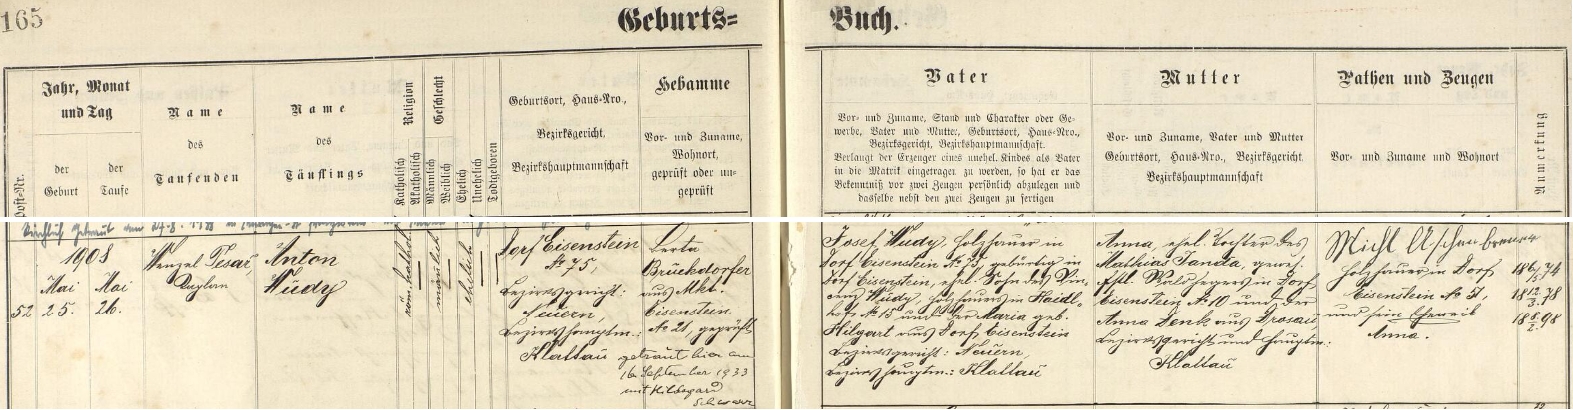 165
Geburts=
Buch.
Jahr, Monat
und Tag
der
Geburt
der
Taufe
Name
des
Taufenden
Name
des
Täuflings
Religion
Katholisch
Akatholisch
Geschlecht
Männlich
Weiblich
Ehelich
Unehelich
Todtgeboren
Geburtsort, Haus-Nro.,
Bezirksgericht,
Bezirkshauptmannschaft
Hebamme
Vor- und Zuname,
Wohnort,
geprüft oder un-
geprüft
Post-Nr.
Vater
Vor- und Zuname, Stand und Charakter oder Ge-
werbe, Vater und Mutter, Geburtsort, Haus-Nro.,
Bezirksgericht, Bezirkshauptmannschaft.
Verlangt der Erzeuger eines unehel. Kindes als Vater
in die Matrik eingetragen zu werden, so hat er das
Bekenntniß vor zwei Zeugen persönlich abzulegen und
dasselbe nebst den zwei Zeugen zu fertigen
Mutter
Vor- und Zuname, Vater und Mutter
Geburtsort, Haus-Nro., Bezirksgericht
Bezirkshauptmannschaft
Pathen und Zeugen
Vor- und Zuname und Wohnort
Anmerkung
1908
Mai Mai
52 25. 26.
Wenzel Tesař
Kaplan
Anton
Wudy
röm. kathol.
männlich
ehelich
Dorf Eisenstein
№ 75,
Bezirksgericht:
Neuern,
Bezirkshauptm.:
Klattau
Berta
Brückdorfer
aus Mkt.
Eisenstein
№ 21, geprüft
getraut hier am
16. September 1933
mit Hildegard
Josef Wudy, Holzhauer in
Dorf Eisenstein № 75, gebürtig in
Dorf Eisenstein, ehel. Sohn des Vin-
cenz Wudy, Holzhauers in Haidl-
№ 15 und der Maria geb.
Hilgart aus Dorf Eisenstein
Bezirksgericht: Neuern,
Bezirkshauptm.: Klattau
Anna, ehel. Tochter des
Mathias Janda, gewes.
Waldhegers in Dorf
Eisenstein № 10 und der
Anna Denk aus Drosau,
Bezirksgericht und Hauptm.:
Klattau
Michl Aschenbrenner
Holzhauer in Dorf
Eisenstein № 51,
und sein Eheweib
Anna.